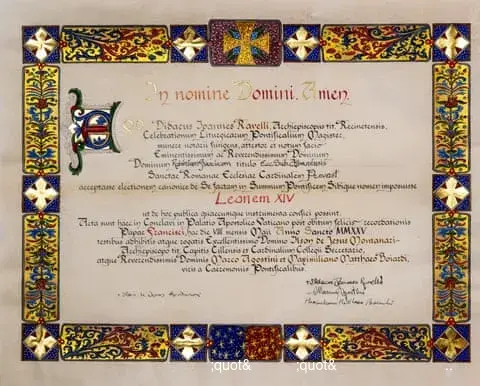 In nomine Domini. Amen
Ego Didacus Ioannes Ravelli, Archiepiscopus tit. Recinetensis,
Celebrationum Liturgicarum Pontificalium Magister,
munere notarii fungens, attestor et notum facio
Eminentissimum ac Reverendissimum Dominum
Dominum Robertum Franciscum titulo Ecc. Sub. Albanensis
Sanctae Romanae Ecclesiae Cardinalem Prevost
acceptasse electionem canonice de Se factam in Summum Pontificem Sibique nomen imposuisse
Leonem XIV
ut de hoc publica quaecumque instrumenta confici possint.
Acta sunt haec in Conclavi in Palatio Apostolico Vaticano post obitum felicis recordationis
Papae Francisci, hac die VIII mensis Maii Anno Sancto MMXXV
testibus adhibitis atque rogatis Excellentissimo Domino Ilson de Jesus Montanari
Archiepiscopo tit. Capitis Cillensis et Cardinalium Collegii Secretario,
atque Reverendissimis Dominis Marco Agostini et Maximiliano Matthaeo Boiardi,
viris a Caeremoniis Pontificalibus.
;quot& ;quot&